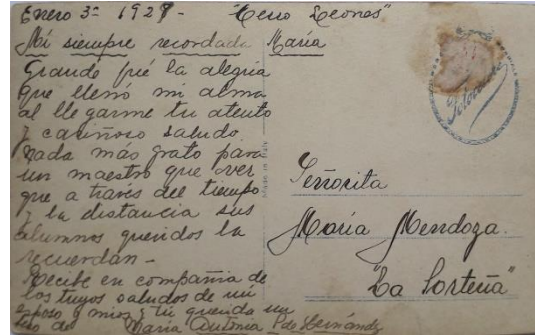 Enero 3= 1927- "Cerro Leones"
Mi siempre recordada María
Grande fué la alegria
que llenó mi alma
al llegarme tu atento
y cariñoso saludo.
Nada más grato para
un maestro que ver
que a través del tiempo
y la distancia sus
alumnos queridos la
recuerdan -
Recibe en compañia de
los tuyos saludos de mi
esposo y mios y tu querida un
de María Antonia P de Hernández
Señorita
María Mendoza.
"La Porteña"